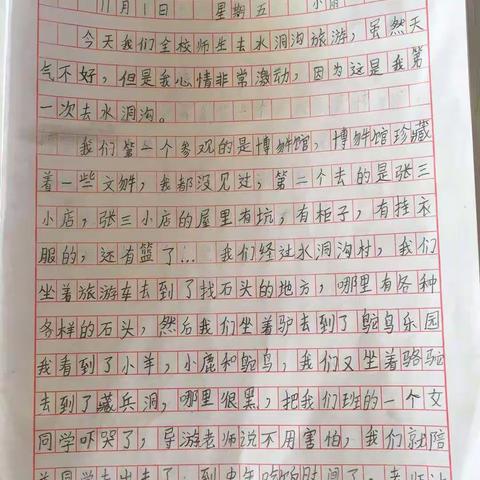 11月1日 星期五 小雨
今天我们全校师生去水洞沟旅游，虽然天
气不好，但是我心情非常激动，因为这是我第
一次去水洞沟。
我们第一个参观的是博物馆，博物馆珍藏
着一些文物，我都没见过，第二个去的是张三
小店，张三小店的屋里有坑，有柜子，有挂衣
服的，还有篮了…我们经过水洞沟村，我们
坐着旅游车去到了找石头的地方，哪里有各种
各样的石头，然后我们坐着驴去到了鸵鸟乐园
我看到了小羊，小鹿和鸵鸟，我们又坐着骆驼
去到了藏兵洞，哪里很黑，把我们班的一个女
同学吓哭了，导游老师说不用害怕，我们就陪
着同学走出去了，到中午吃饭时间了，老师让